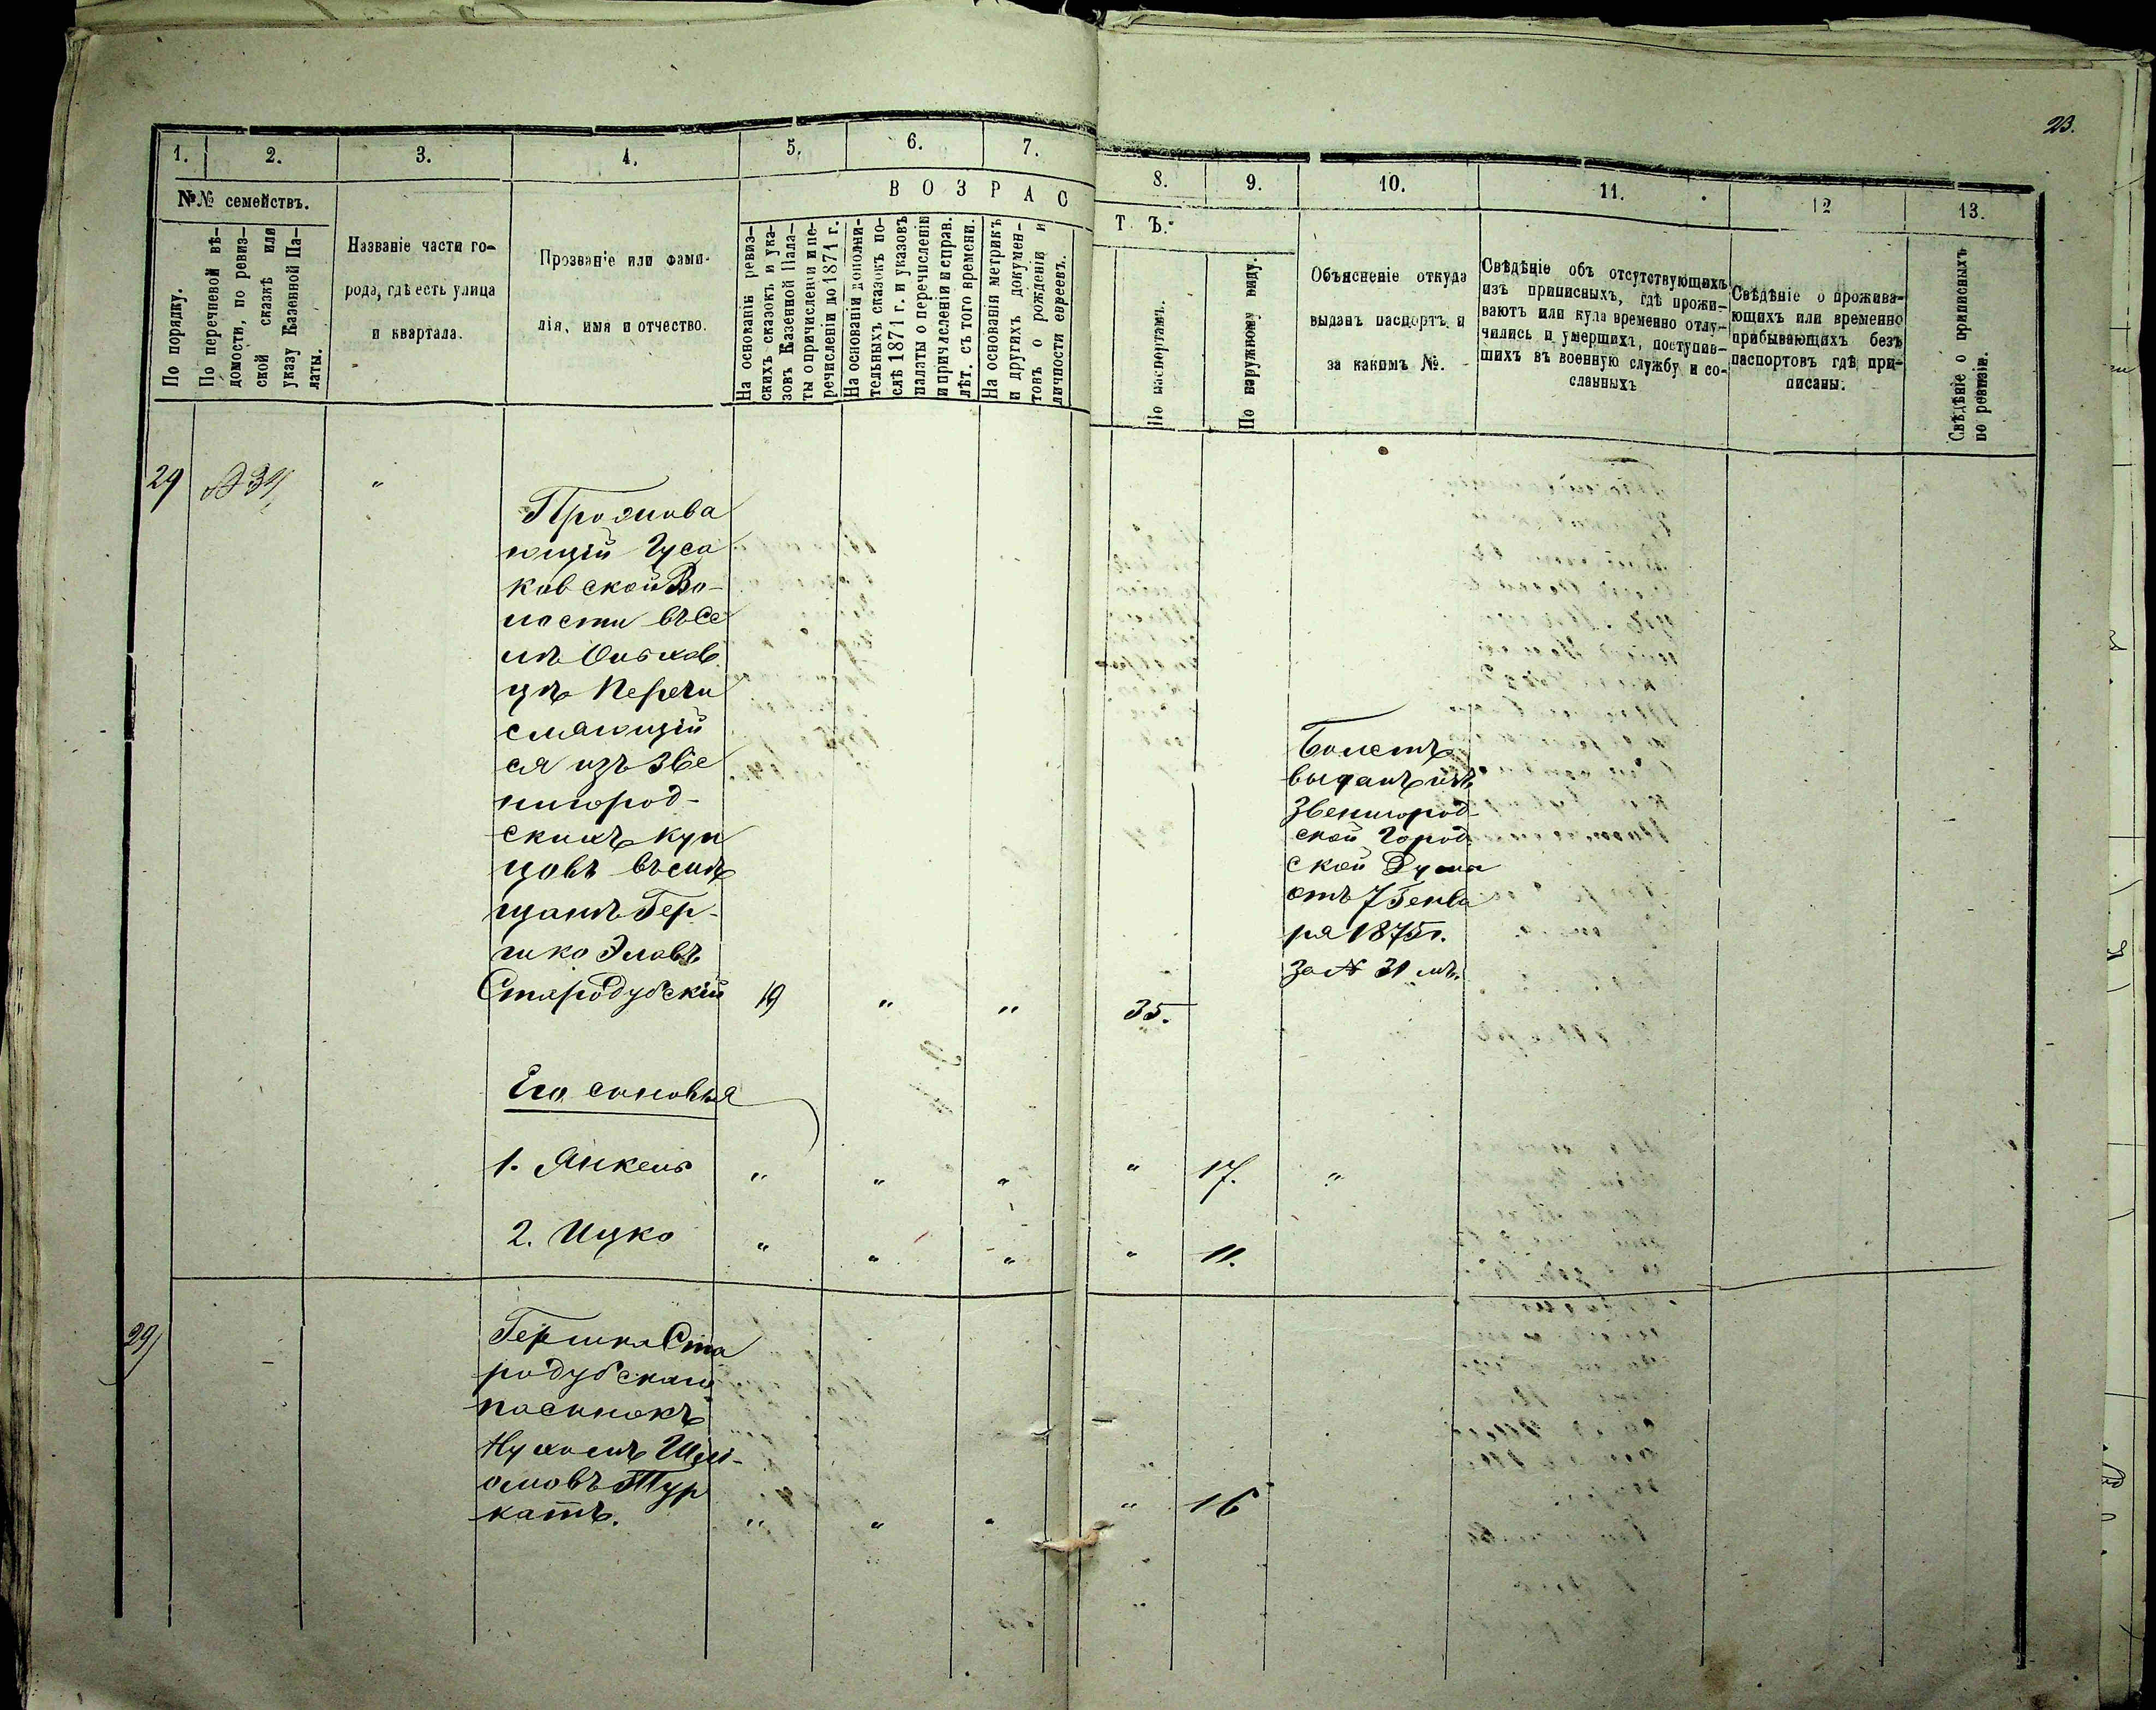 23.
1. 2. 3. 4. 5. 6. 7. 8. 9. 10. 11. 12 13.
№№ семействъ.
ВОЗРАСТЪ.
По порядку.
По перечневой вѣ-
домости, по ревиз-
ской сказкѣ или
указу Казенной Па-
латы.
Названіе части го-
рода, гдѣ есть улица
и квартала.
Прозваніе или фами-
лія, имя и отчество.
На основаніи ревиз-
скихъ сказокъ и ука-
зовъ Казенной Пала-
ты о причисленіи и пе-
речисленіи до 1871 г.
На основаніи дополни-
тельныхъ сказокъ по-
слѣ 1871 г. и указовъ
палаты о перечисленіи
и причисленіи и справ.
лѣт. съ того времени.
На основаніи метрикъ
и другихъ докумен-
товъ о рожденіи и
личности евреевъ.
По паспортамъ.
По наружному виду.
Объясненіе откуда
выданъ паспортъ и
за какимъ №.
Свѣдѣніе объ отсутствующихъ
изъ приписныхъ, гдѣ прожи-
ваютъ или куда временно отлу-
чились и умершихъ, поступив-
шихъ въ военную службу и со-
сланныхъ
Свѣдѣніе о прожива-
ющихъ или временно
прибывающихъ безъ
паспортовъ гдѣ при-
писаны.
Свѣдѣніе о приписныхъ
по ревизіи.
29 № 34 "
Прожива
ющій Гуса
ковской Во-
лости въ Се
лѣ Ольхов
цѣ Перечи
сляющій
ся изъ Зве
нигород-
скихъ куп
цовъ въ мѣ
щанъ Гер-
шко Элевъ
Стародубскій 19 " " 35.
Билетъ
выданъ изъ
Звенигород-
ской Город
ской Думы
отъ 7 Генва
ря 1875 г.
за № 31 мъ.
Его сыновья
1. Янкель " " " " 17. "
2. Ицко " " " " 11.
29
Гершка Ста
родубскаго
пасынокъ
Нухимъ Шлі-
омовъ Тур
катъ. " " " " 16